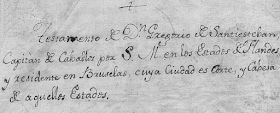 Testamento de Dn. Gregorio de Santiesteban,
Capitan de Caballos por S. M. en los Estados de Flandes
y residente en Bruselas, cuya Ciudad es Corte, y Cabesa
de aquellos Estados.